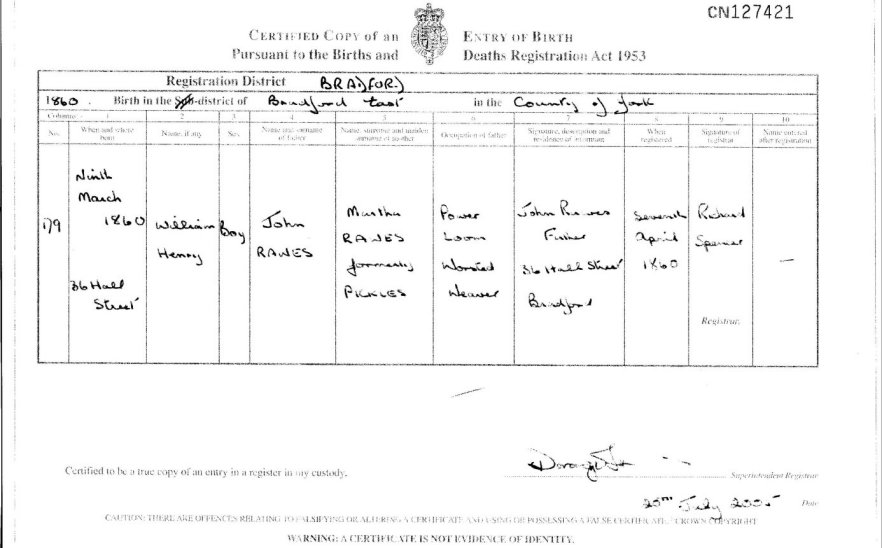 CN127421
CERTIFIED COPY of an ENTRY OF BIRTH
Pursuant to the Births and Deaths Registration Act 1953
Registration District BRADFORD
1860. Birth in the Sub-district of Bradford East in the County of York
Columns: 1 2 3 4 5 6 7 8 9 10
No. When and where born Name, if any Sex Name and surname of father Name, surname and maiden surname of mother Occupation of father Signature, description and residence of informant When registered Signature of registrar Name entered after registration
179 Ninth March 1860 36 Hall Street William Henry Boy John RAWES Martha RAWES formerly PICKLES Power Loom Worsted Weaver John Rawes Father 36 Hall Street Bradford Seventh April 1860 Richard Spencer Registrar. —
Certified to be a true copy of an entry in a register in my custody.
Superintendent Registrar
20th July 2005 Date
CAUTION: THERE ARE OFFENCES RELATING TO FALSIFYING OR ALTERING A CERTIFICATE AND USING OR POSSESSING A FALSE CERTIFICATE. CROWN COPYRIGHT
WARNING: A CERTIFICATE IS NOT EVIDENCE OF IDENTITY.